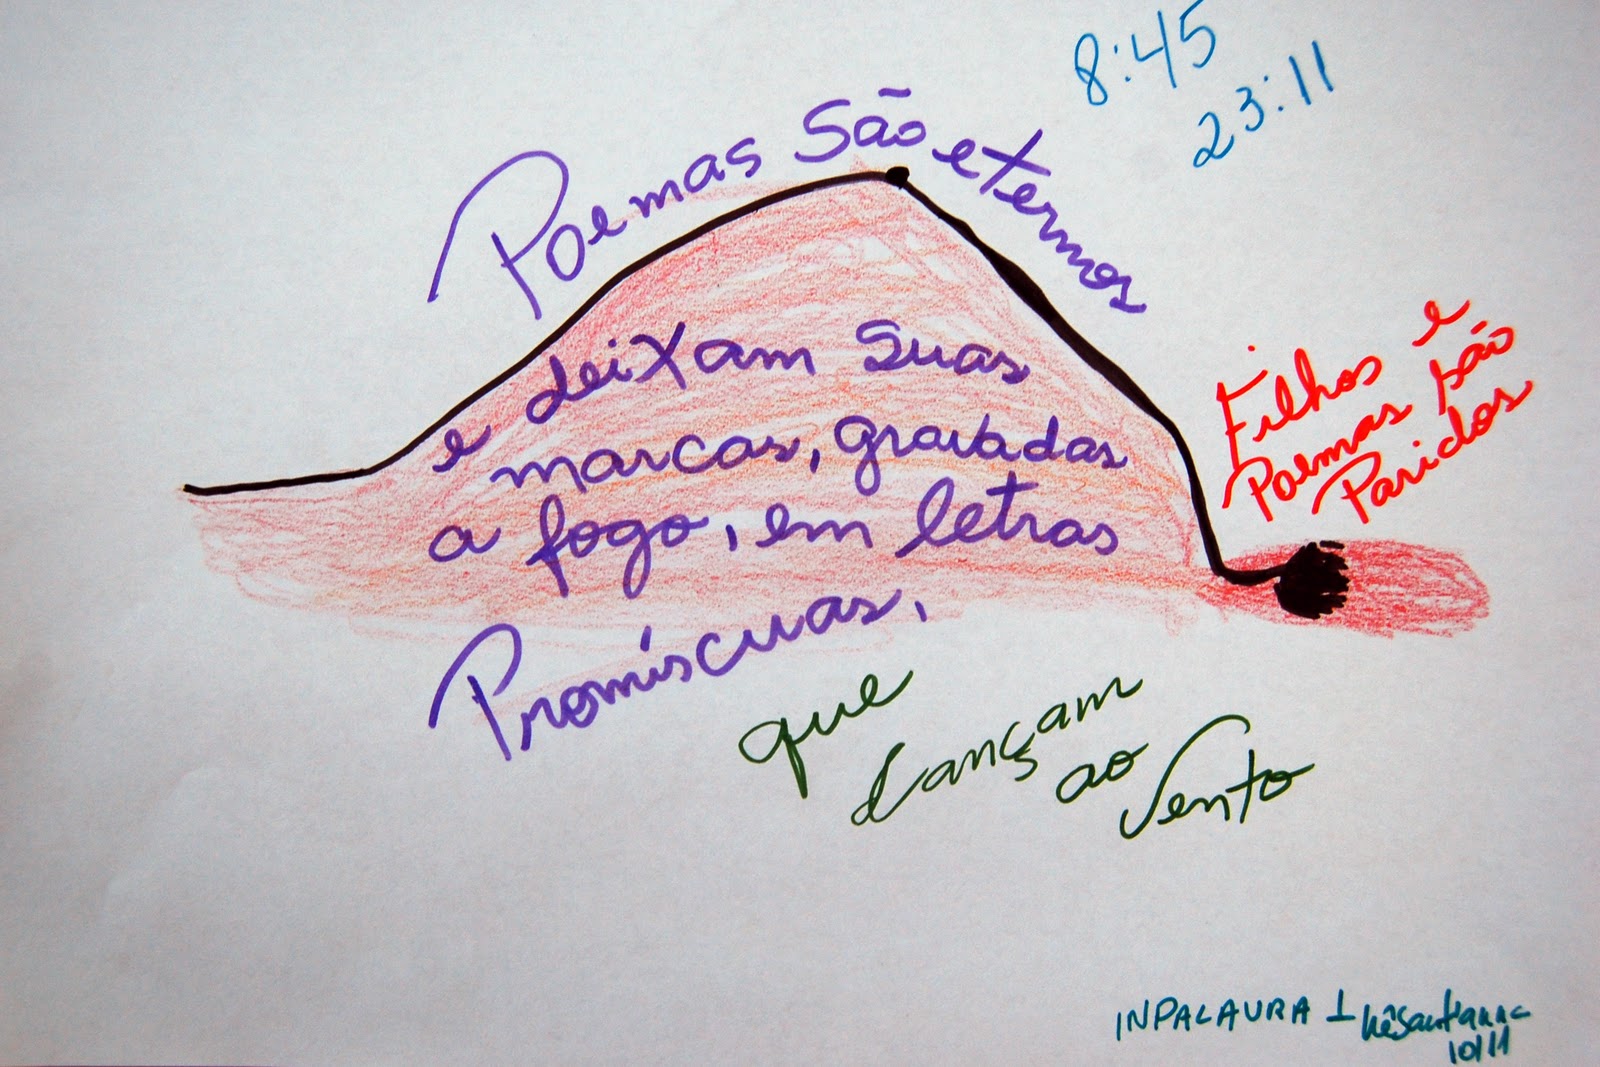 8:45
23:11
Poemas São eternos
e deixam suas
marcas, gravadas
a fogo, em letras
Promíscuas,
que
dançam
ao
Vento
Filhos e
Poemas são
Paridos
INPALAURA 1
10/11